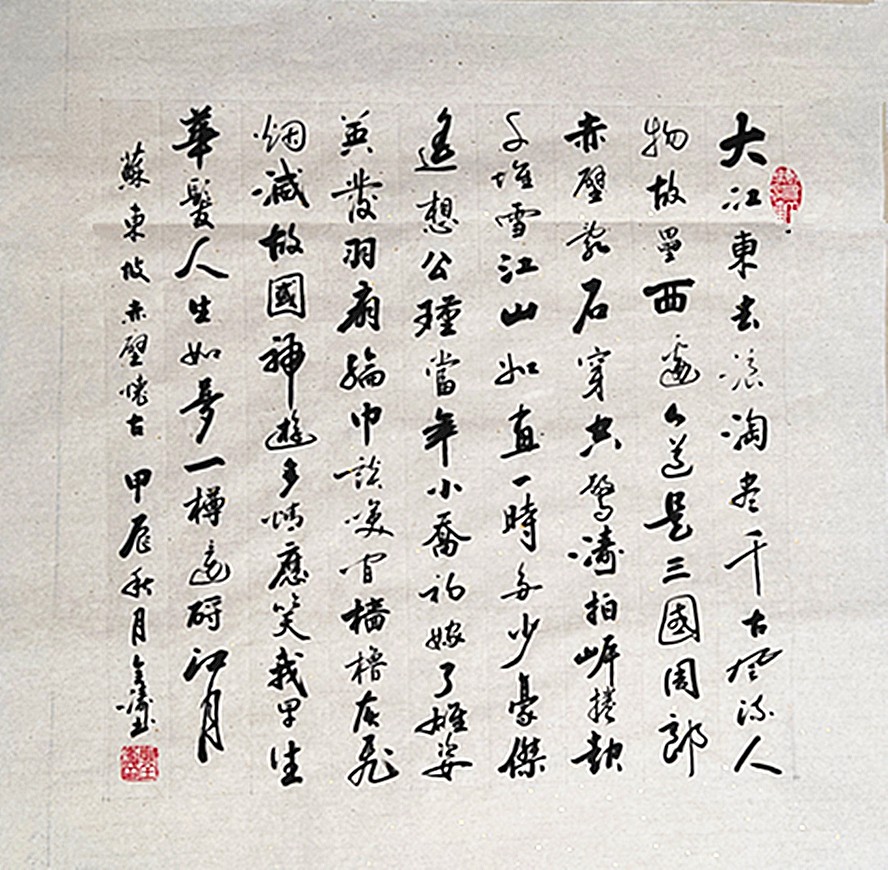 大江東去浪淘盡千古風流人
物故壘西邊人道是三國周郎
赤壁亂石穿空驚濤拍岸捲起
千堆雪江山如畫一時多少豪傑
遙想公瑾當年小喬初嫁了雄姿
英發羽扇綸巾談笑間檣櫓灰飛
烟滅故國神遊多情應笑我早生
華髮人生如夢一樽還酹江月
蘇東坡赤壁懷古 甲辰秋月